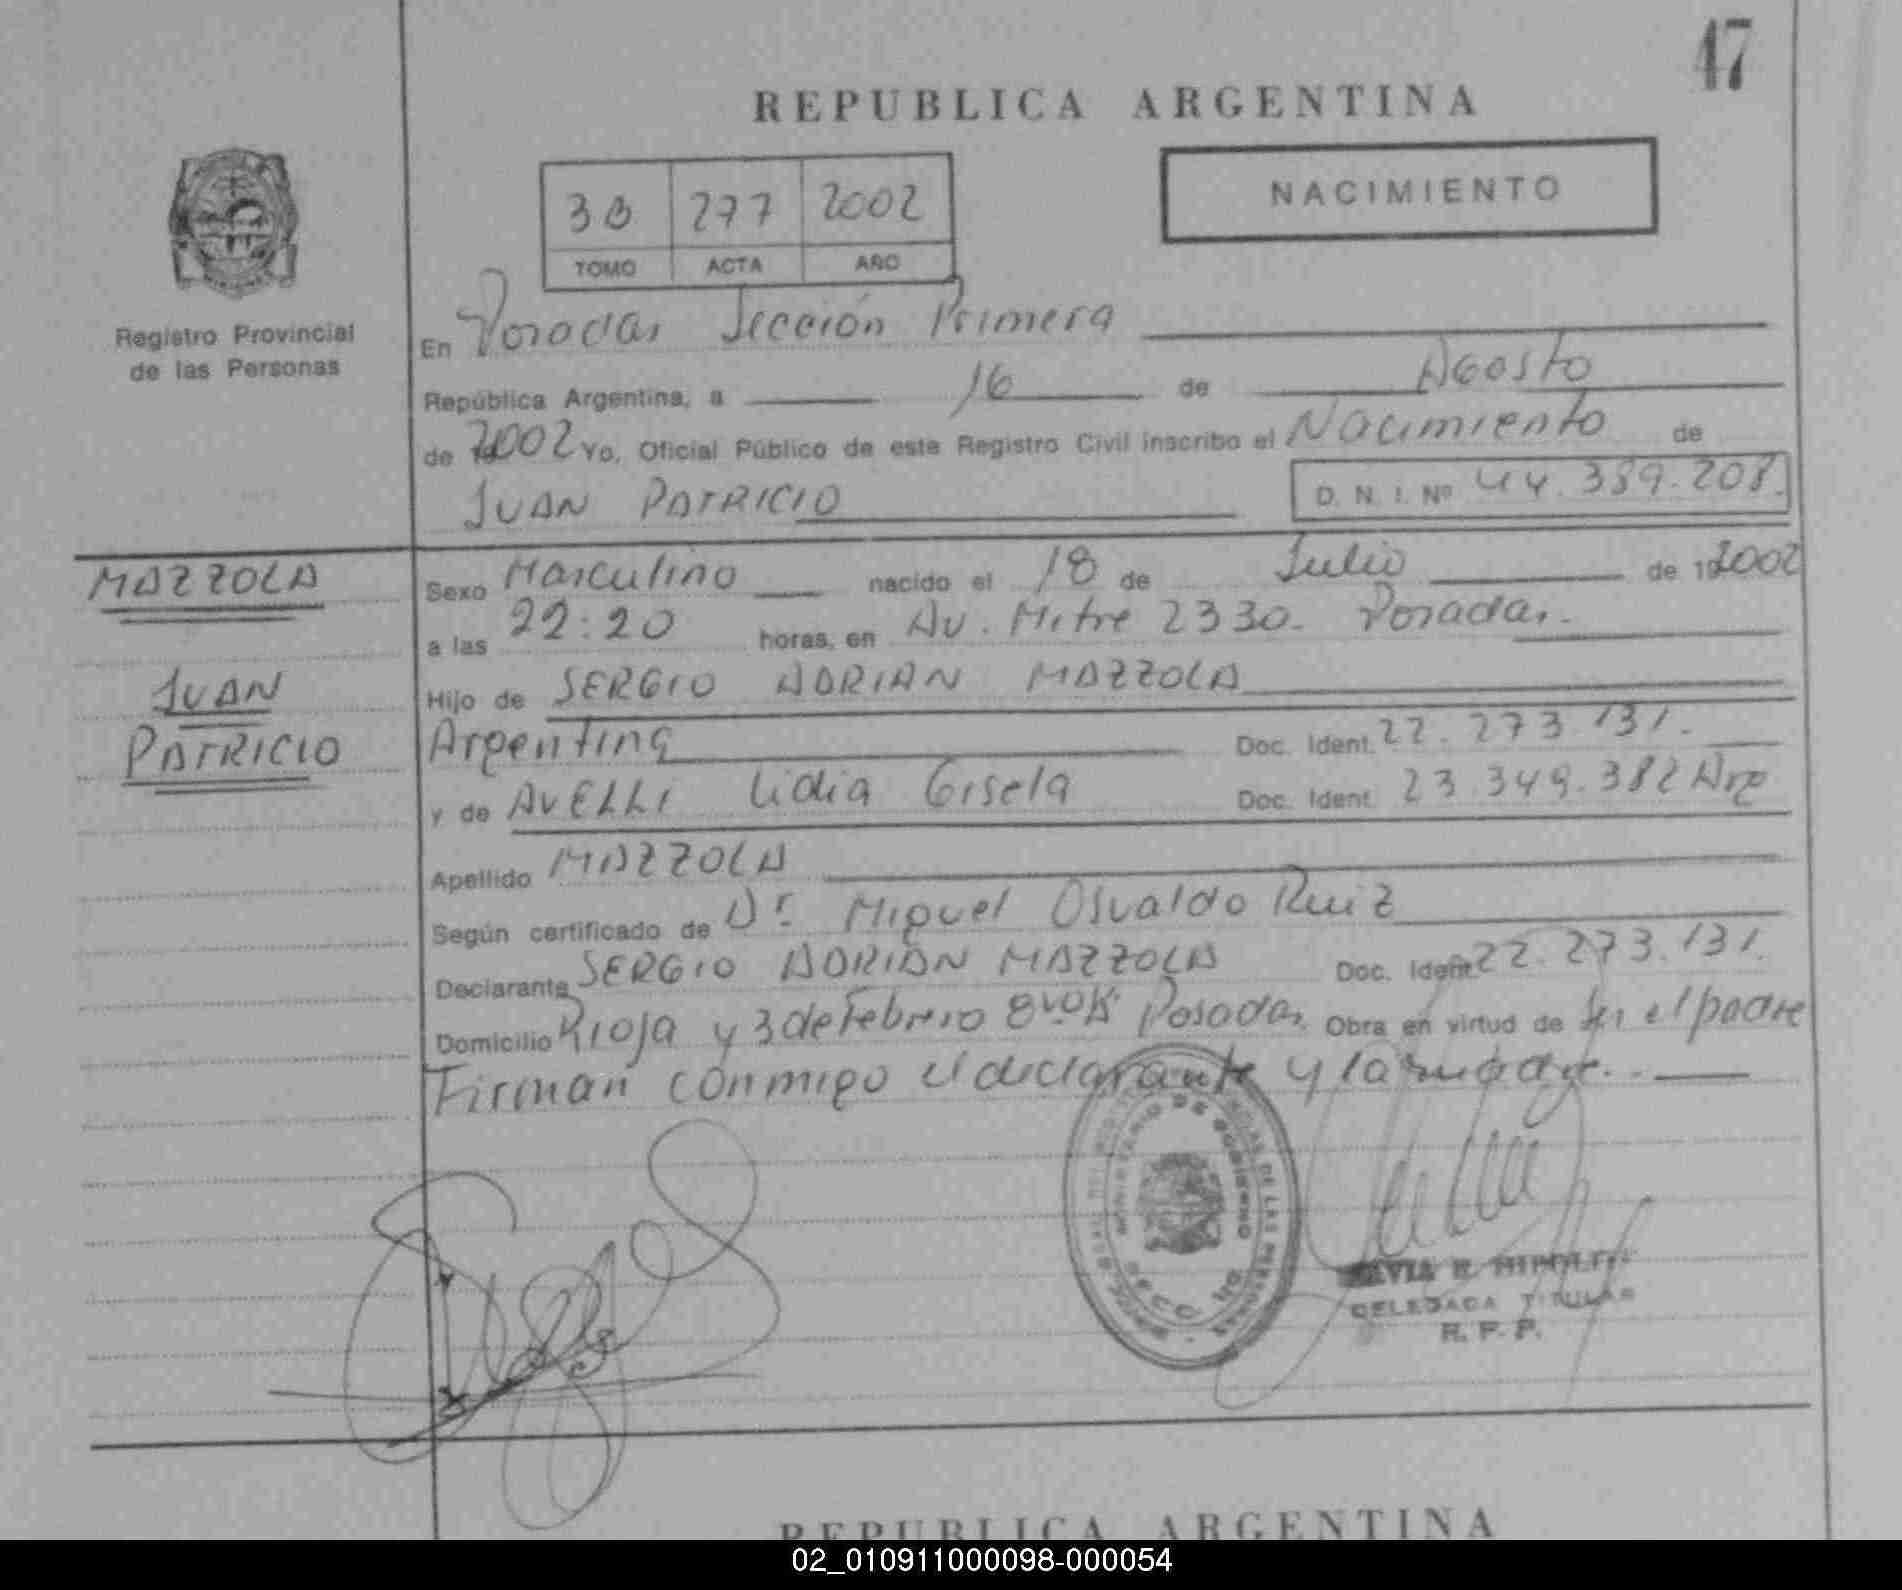 47
REPUBLICA ARGENTINA
NACIMIENTO
277 2002
TOMO ACTA AÑO
Registro Provincial
de las Personas
En Posadas Sección Primera
República Argentina, a 16 de Agosto
de 2002 Yo, Oficial Público de este Registro Civil inscribo el Nacimiento de
JUAN PATRICIO D. N. I. Nº 44.389.208.
MAZZOLA
JUAN
PATRICIO
Sexo Masculino nacido el 18 de Julio de 2002
a las 22:20 horas, en Av. Mitre 2330. Posadas.
Hijo de SERGIO ADRIAN MAZZOLA
Argentina Doc. Ident. 22.273.131.
y de AVELLI Lidia Gisela Doc. Ident. 23.349.382 Arg
Apellido MAZZOLA
Según certificado de Dr. Miguel Osvaldo Ruiz
Declarante SERGIO ADRIAN MAZZOLA Doc. Ident. 22.273.131.
Domicilio Rioja y 3 de Febrero Posadas Obra en virtud de ser el padre
Firman conmigo el declarante y la madre.
MINISTERIO DE GOBIERNO
DELEGADA TITULAR
R. P. P.
REPUBLICA ARGENTINA
02_010911000098-000054